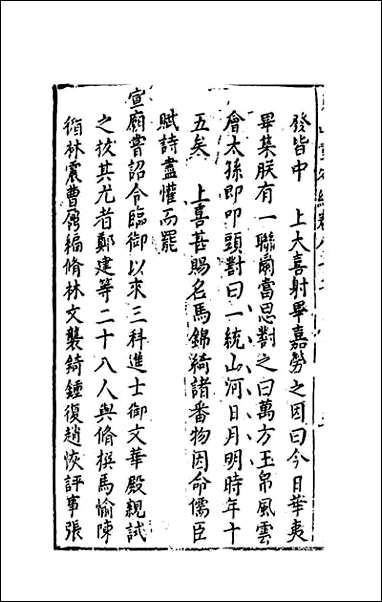 發皆中　上大喜射畢嘉勞之因曰今日華夷
畢集朕有一聯爾當思對之曰萬方玉帛風雲
會太孫即叩頭對曰一統山河日月明時年十
五矣　上喜甚賜名馬錦綺諸番物因命儒臣
賦詩盡懽而罷
宣廟嘗詔令臨御以來三科進士御文華殿親試
之拔其尤者鄭建等二十八人與脩撰馬愉陳
循林震曹鼐編脩林文龔錡鍾復趙恢評事張